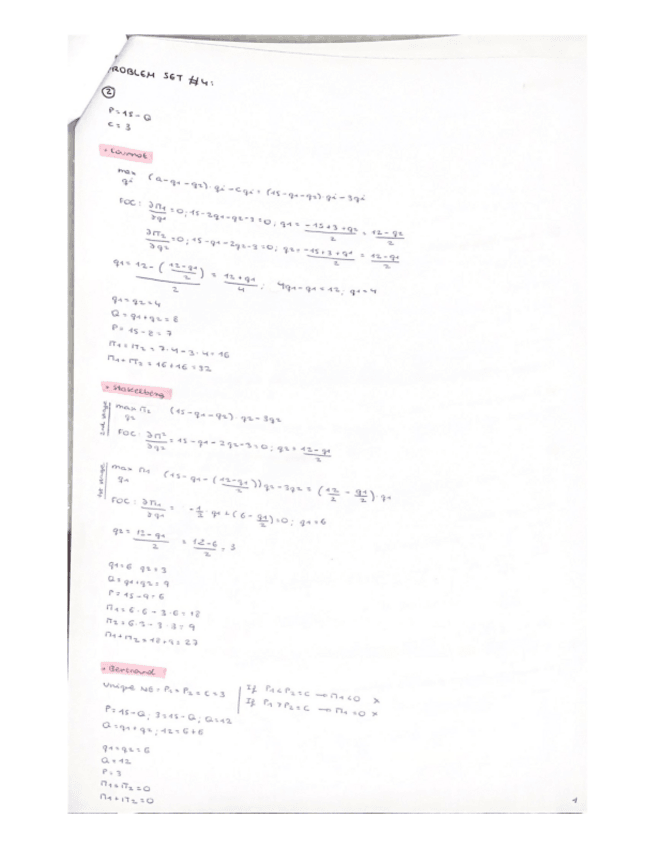 PROBLEM SET #4:
②
P=15-Q
C=3
• Cournot
max qi (a-q1-q2)·qi-cqi=(15-q1-q2)·qi-3qi
FOC: ∂π1/∂q1=0; 15-2q1-q2-3=0; q1=-15+3+q2/2=12-q2/2
∂π2/∂q2=0; 15-q1-2q2-3=0; q2=-15+3+q1/2=12-q1/2
q1=12-(12-q1/2)/2=12+q1/4; 4q1-q1=12; q1=4
q1=q2=4
Q=q1+q2=8
P=15-8=7
π1=π2=7·4-3·4=16
π1+π2=16+16=32
• Stakelberg
2nd stage max π2 q2 (15-q1-q2)·q2-3q2
FOC: ∂π2/∂q2=15-q1-2q2-3=0; q2=12-q1/2
1st stage max π1 q1 (15-q1-(12-q1/2))q2-3q2=(12/2-q1/2)·q1
FOC: ∂π1/∂q1=-1/2·q1+(6-q1/2)=0; q1=6
q2=12-q1/2=12-6/2=3
q1=6 q2=3
Q=q1+q2=9
P=15-9=6
π1=6·6-3·6=18
π2=6·3-3·3=9
π1+π2=18+9=27
• Bertrand
Unique NE: P1=P2=C=3 If P1<P2=C → π1<0 x
If P1>P2=C → π1=0 x
P=15-Q; 3=15-Q; Q=12
Q=q1+q2; 12=6+6
q1=q2=6
Q=12
P=3
π1=π2=0
π1+π2=0
1